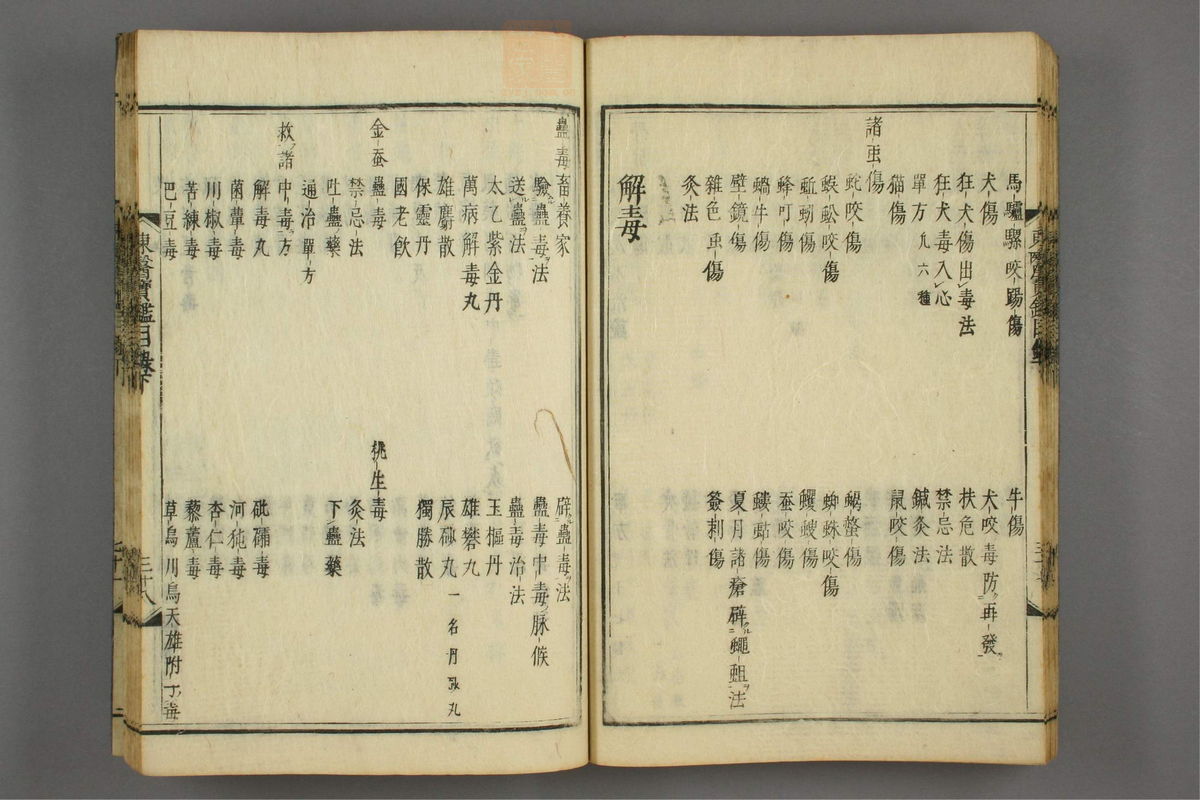 馬驢騾咬踢傷
牛傷
犬傷
犬咬毒防再發
狂犬傷出毒法
扶危散
狂犬毒入心
禁忌法
單方 九六種
鍼灸法
猫傷
鼠咬傷
諸虫傷
蛇咬傷
蝎螫傷
蜈蚣咬傷
蜘蛛咬傷
蚯蚓傷
蠷螋傷
蜂叮傷
蚕咬傷
蝸牛傷
螻蛄傷
壁鏡傷
夏月諸瘡辟蠅蛆法
雜色虫傷
簽刺傷
灸法
解毒
蠱毒畜養家
辟蠱毒法
驗蠱毒法
蠱毒中毒脉候
送蠱法
蠱毒治法
太乙紫金丹
玉樞丹
萬病解毒丸
雄礬丸
雄麝散
辰砂丸 一名丹砂丸
保靈丹
獨勝散
國老飲
金蚕蠱毒
挑生毒
禁忌法
灸法
吐蠱藥
下蠱藥
通治單方
救諸中毒方
解毒丸
砒礵毒
菌蕈毒
河㹠毒
川椒毒
杏仁毒
苦練毒
藜蘆毒
巴豆毒
草烏川烏天雄附子毒
東醫寳鑑目録下
三十八